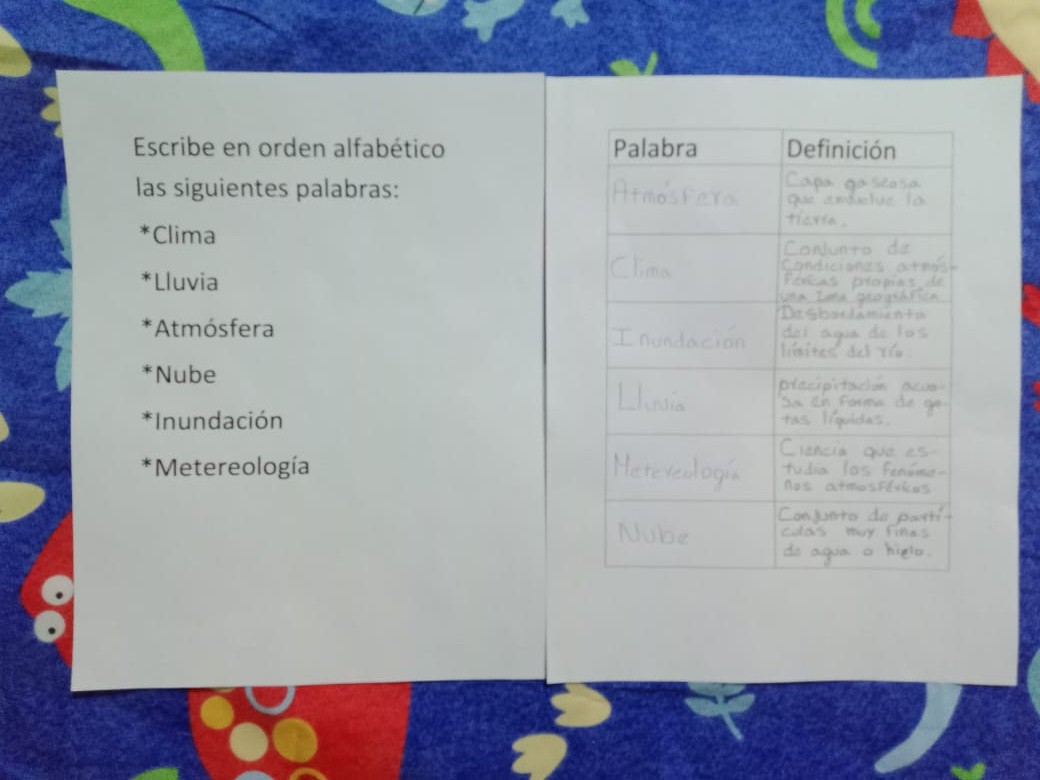 Escribe en orden alfabético
las siguientes palabras:
*Clima
*Lluvia
*Atmósfera
*Nube
*Inundación
*Metereología
Palabra
Definición
Atmósfera
Capa gaseosa
que envuelve la
tierra.
Clima
Conjunto de
Condiciones atmós-
féricas propias de
una zona geográfica
Inundación
Desbordamiento
del agua de los
límites del río.
Lluvia
precipitación acuo-
sa en forma de go-
tas líquidas.
Metereología
Ciencia que es-
tudia los fenóme-
nos atmosféricos
Nube
Conjunto de partí-
culas muy finas
de agua o hielo.